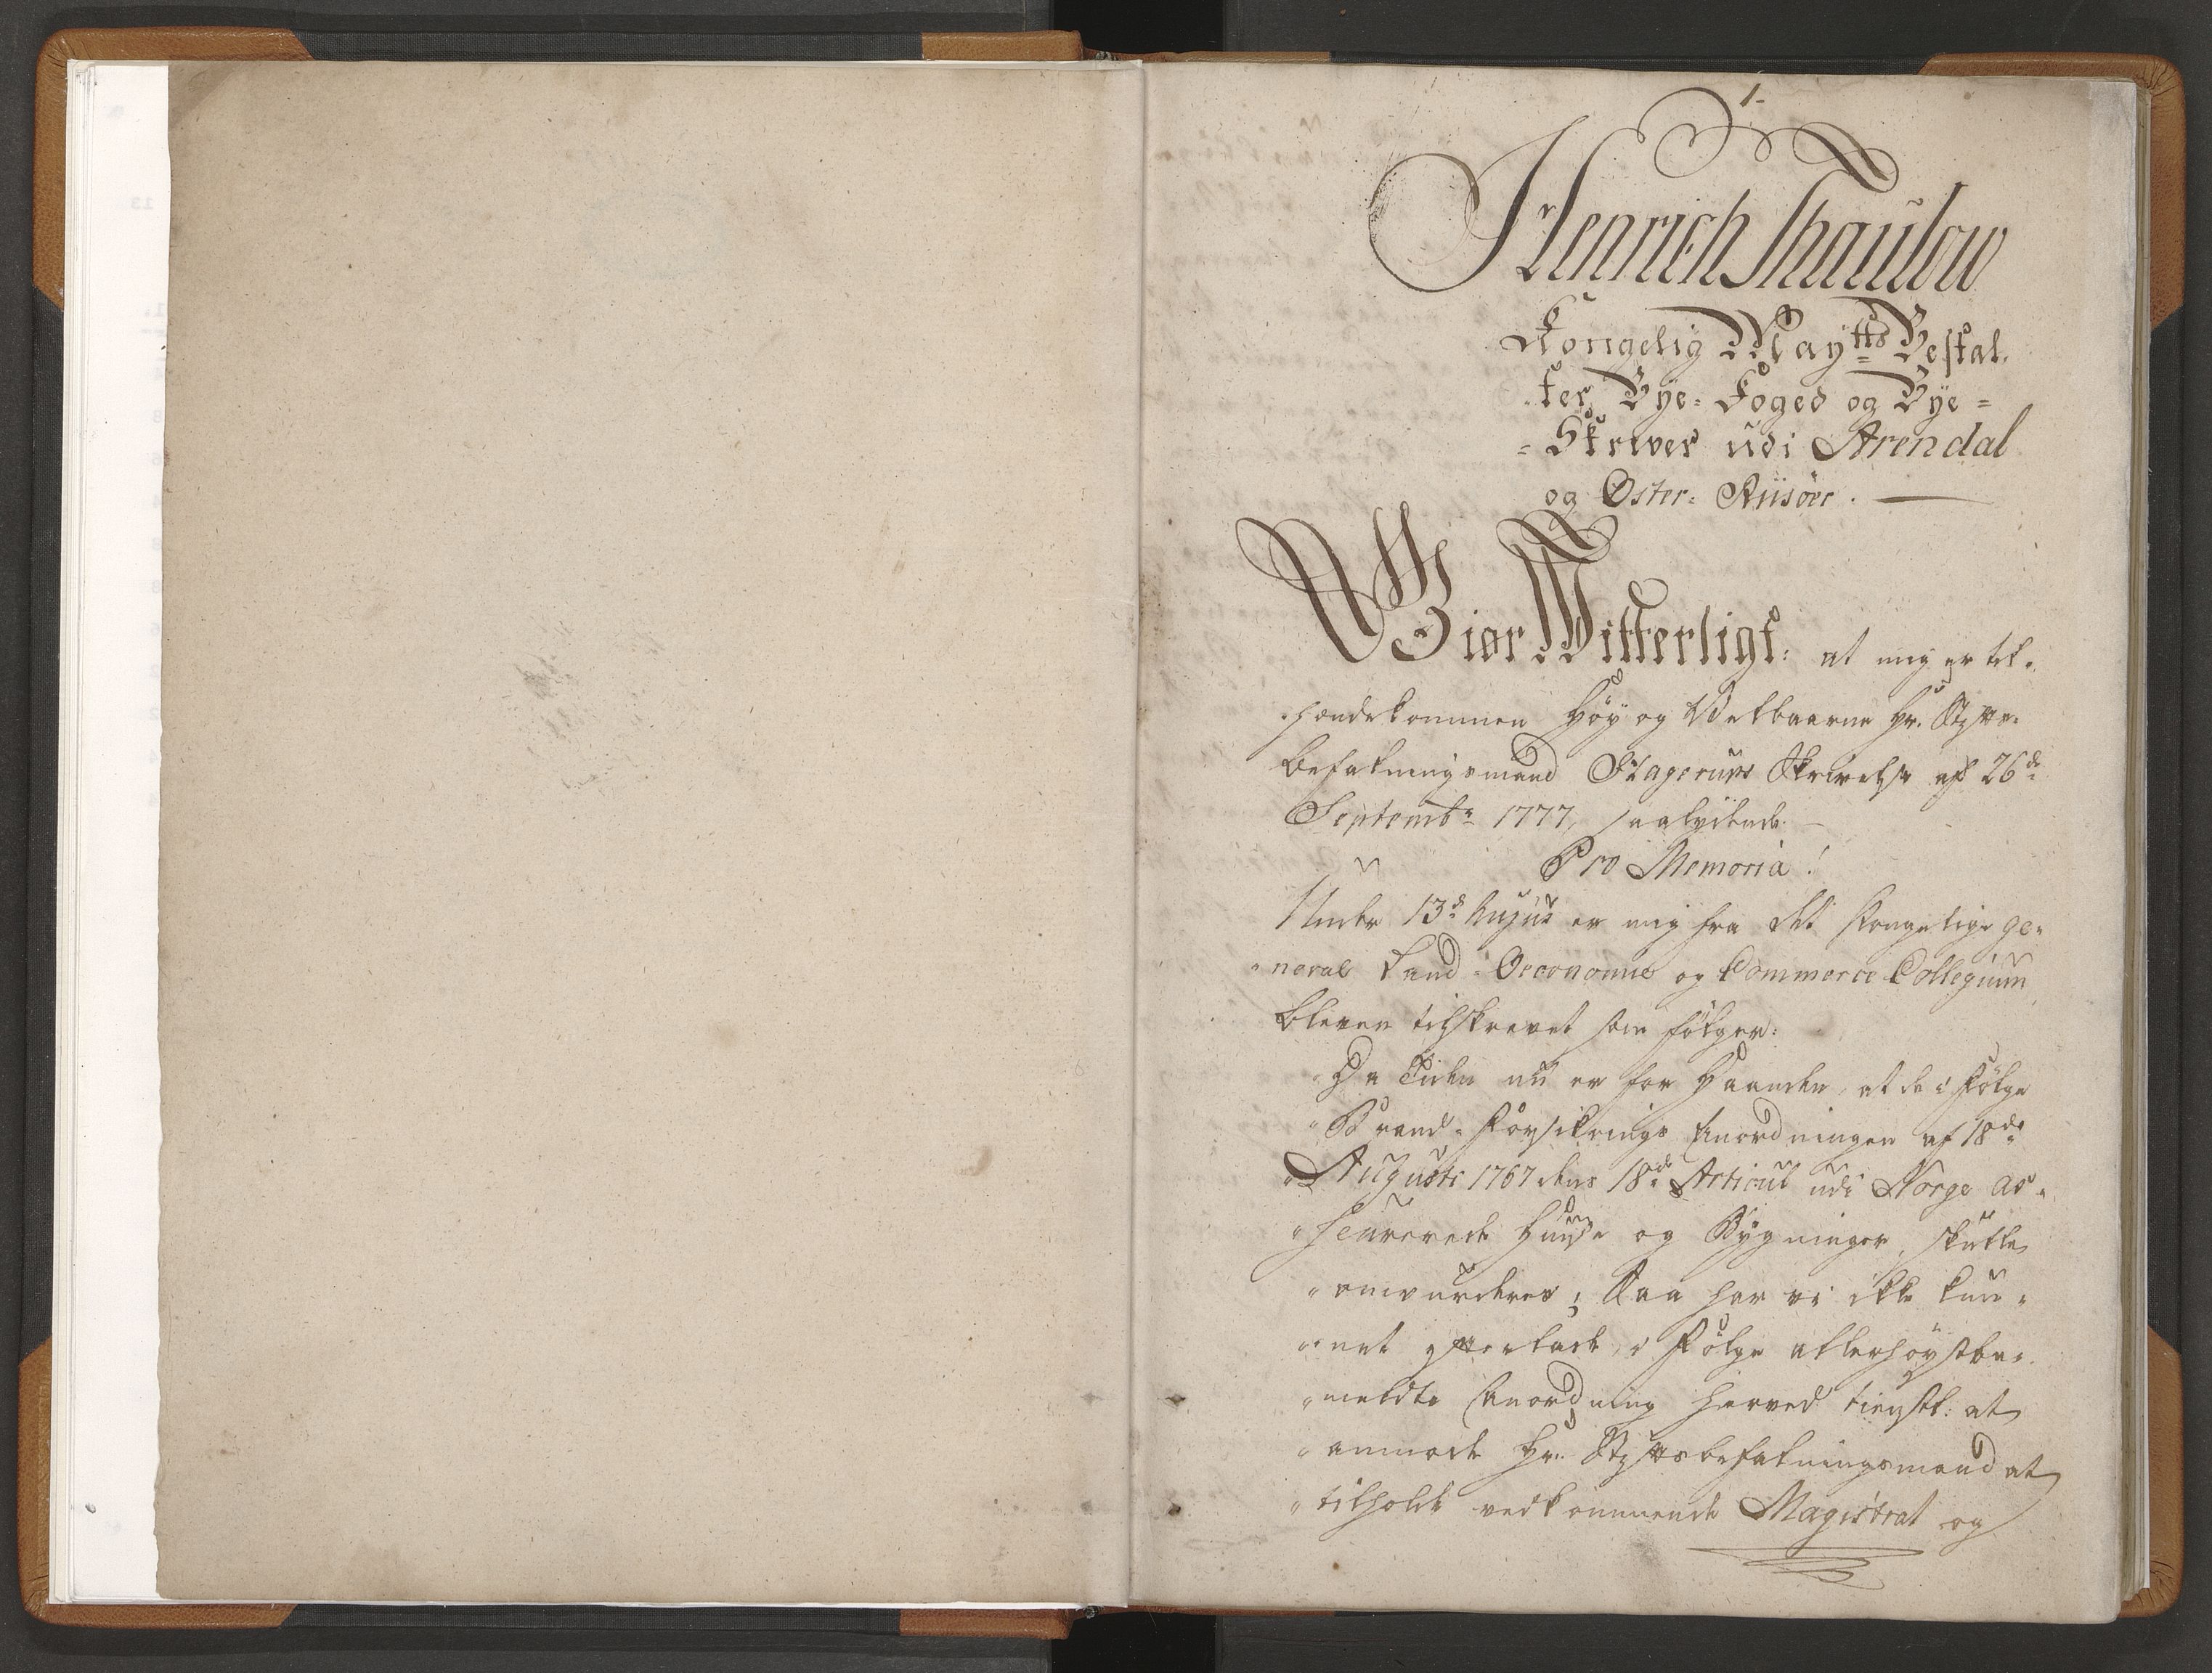 1.
Henrich Thaulow
Kongelig Maytts Bestal,,
ter Bye-Foged og Bye=
=Skriver udi Arendal
og Øster-Riisöer.
Giør Witterligt: at mig er til,,
hændekommen Höy og Velbaarne Hr. Stifts
befalningsmand Hagerups Skrivelse af 26de
Septembr 1777, saalydende.
Pro Memoria!
Under 13de hujus er mig fra det Kongelige ge,,
neral Land-Oeconomie og Commerce Collegium
bleven tilskrevet som fölger:
"Da Tiden nu er for Haanden, at de i Fölge
"Brand-Forsikrings Anordningen af 18de
"Augusti 1767 dens 18de Articul udi Norge as,,
"seurerede Huuse og Bygninger, skulle
"omvurderes; Saa har vi ikke kun,,
"net efterlade, i Fölge allerhöystbe,,
"meldte Anordning herved tienstl: at
"anmode Hr. Stiftsbefalningsmand at
"tilholde vedkommende Magistrat og